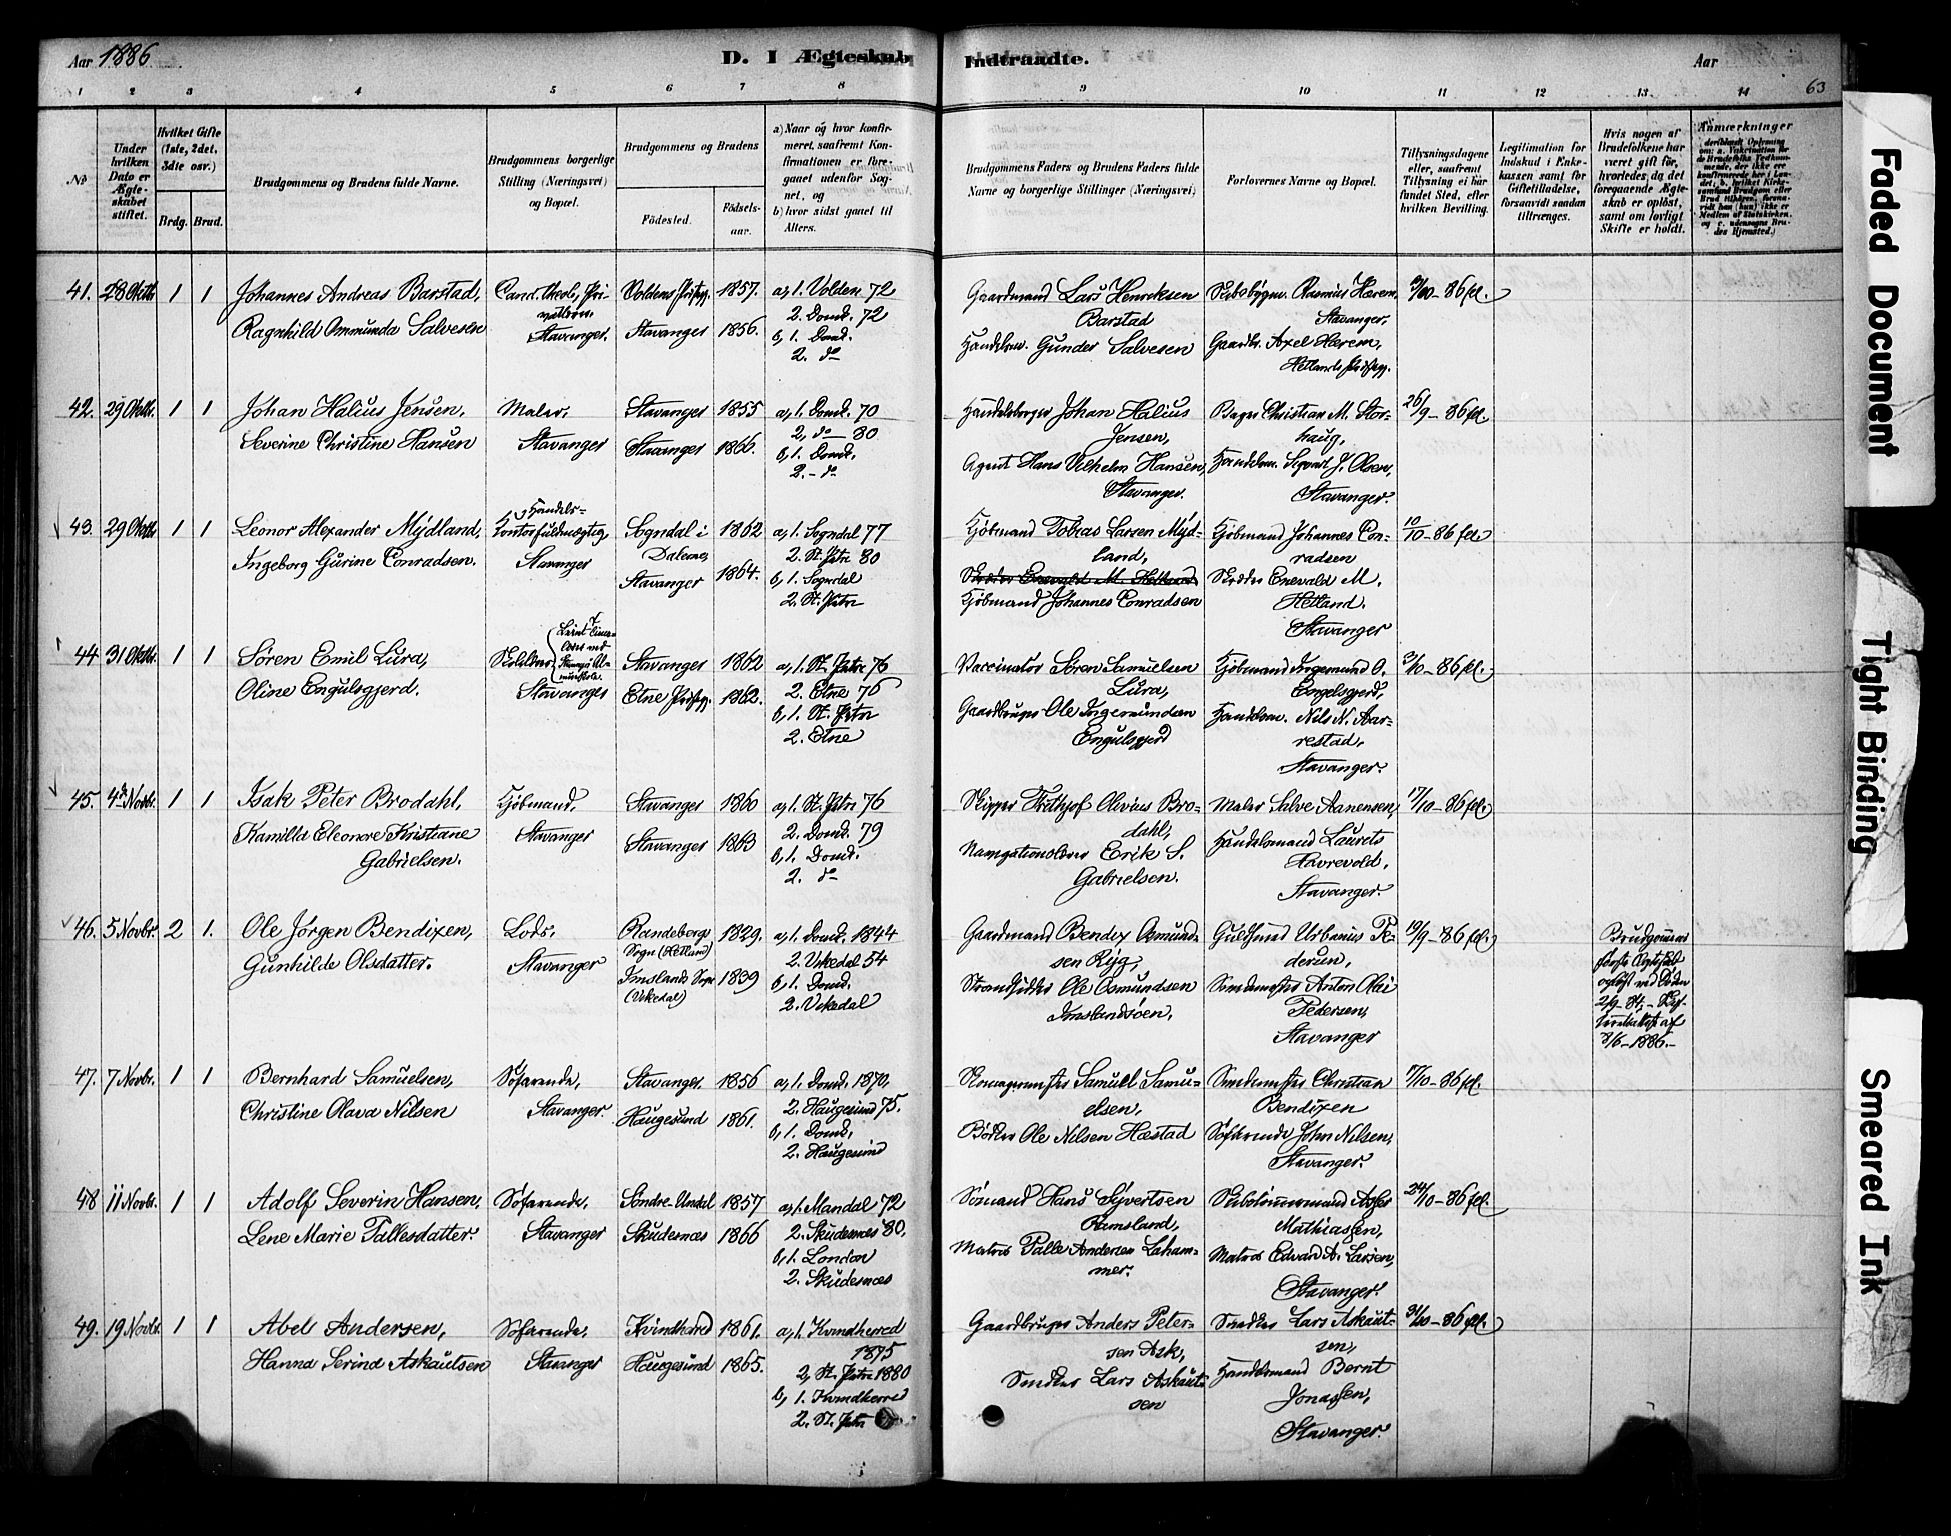 Aar 1886
D. I Ægteskab
Indtraadte.
Aar
63
1 2 3 4 5 6 7 8 9 10 11 12 13 14
№
Under hvilken Dato er Ægteskabet stiftet.
Hvilket Gifte (1ste, 2det, 3die osv.)
Brdg. Brud.
Brudgommens og Brudens fulde Navne.
Brudgommens borgerlige Stilling (Næringsvei) og Bopæl.
Brudgommens og Brudens
Födested.
Födselsaar.
a) Naar og hvor konfirmeret, saafremt Konfirmationen er foregaaet udenfor Sognet, og
b) hvor sidst gaaet til Alters.
Brudgommens Faders og Brudens Faders fulde Navne og borgerlige Stillinger (Næringsvei)
Forlovernes Navne og Bopæl.
Tillysningsdagene eller, saafremt Tillysning ei har fundet Sted, efter hvilken Bevilling.
Legitimation for Indskud i Enkekassen samt for Giftetilladelse, forsaavidt saadan tiltrænges.
Hvis nogen af Brudefolkene har været gift før, hvorledes da det foregaaende Ægteskab er oplöst, samt om lovligt Skifte er holdt.
Anmærkninger
41. 28 Oktbr 1 1
Johannes Andreas Barstad,
Ragnhild Ommunda Salvesen
Cand. theol,
Stavanger.
Voldens Prstgj. 1857.
Stavanger 1856.
a, 1. Volden 72
2. Domk. 72
b, 1. Domk.
2. do
Gaardmand Lars Henriksen
Barstad
Handelsm. Gunder Salvesen
Skibsbygm. Rasmus Hærem,
Stavanger,
Gaardbr. Axel Hærem,
Hetlands Prstgj.
3/10-86 fel.
42. 29 Oktbr. 1 1
Johan Halius Jensen,
Severine Christine Hansen
Maler,
Stavanger
Stavanger 1855
Stavanger 1866.
a, 1. Domk. 70
2, do 80
b, 1. Domk.
2. - do
Handelsborger Johan Halius
Jensen,
Agent Hans Vilhelm Hansen,
Stavanger.
Bager Christian M. Storhaug,
Handelsm. Sigvart J. Olsen,
Stavanger.
26/9-86 fel
43. 29 Oktbr 1 1
Leonor Alexander Mydland,
Ingeborg Gurine Conradsen.
Handels-
Kontorfuldmægtig,
Stavanger
Sogndal i 1862
Dalerne,
Stavanger 1864.
a, 1. Sogndal 77
2. St. Petri 80
b, 1. Sogndal
2. St. Petri
Kjøbmand Tobias Larsen Mydland,
Skræder Enevald M. Hetland
Kjøbmand Johannes Conradsen
Kjøbmand Johannes Conradsen
Skræder Enevald M.
Hetland.
Stavanger
10/10-86 fel.
44 31 Oktbr. 1 1
Søren Emil Lura,
Oline Engulsgjerd.
Skolelærer
Stavanger
Stavanger 1862
Etne Prstgj. 1862.
a, 1. St. Petri 76
2. Etne 76
b, 1. St. Petri
2. Etne
Vaccinatør Søren Samuelsen
Lura,
Gaardbruger Ole Ingemundsen
Engulsgjerd
Kjøbmand Ingemund O.
Engelsgjerd,
Handelsm. Nils N. Aarrestad,
Stavanger.
3/10-86 fel.
45. 4de Novbr. 1 1
Isak Peter Brodahl,
Kamilla Eleonore Kristiane
Gabrielsen.
Kjøbmand,
Stavanger
Stavanger 1860
Stavanger 1863
a, 1. St. Petri 76
2. Domk. 79
b, 1. Domk.
2. do
Skipper Frithjof Olevius Brodahl,
Navigationslærer Erik S.
Gabrielsen.
Maler Salve Aanensen,
Handelsmand Laurets
Faurevold,
Stavanger.
17/10-86 fel.
46. 5 Novbr. 2 1.
Ole Jørgen Bendixen,
Gunhilde Olsdatter.
Lods,
Stavanger
Randeberg 1829.
Sogn (Hetland)
Imslands Sogn 1839
(Vikedal)
a, 1. Domk. 1844
2. Vikedal 54
b, 1. Domk.
2. Vikedal
Gaardmand Bendix Osmundsen Ryg,
Strandsidder Ole Osmundsen
Imslandsøen,
Guldsmed Urbanius Pederun,
Snedkermester Anton Olai
Pedersen,
Stavanger
19/9-86 fel.
Brudgommens
første Ægteskab
opløst ved Døden
2/9-84,
af
8/6-1886.-
47. 7 Novbr. 1 1
Bernhard Samuelsen,
Christine Olava Nilsen
Søfarende,
Stavanger.
Stavanger. 1856
Haugesund 1861.
a, 1. Domk. 1870,
2. Haugesund 75.
b, 1. Domk,
2. Haugesund
Skomagermester Samuel Samuelsen,
Bødker Ole Nilsen Hæstad
Snedkermester Christian
Bendixen
Søfarende John Nilsen,
Stavanger.
17/10-86 fel.
48 11 Novbr. 1 1
Adolf Severin Hansen,
Lene Marie Tallesdatter.
Søfarende,
Stavanger
Søndre-Undal 1857
Skudesnæs 1866
a, 1. Mandal 72
2. Skudesnæs 80,
b, 1. London
2. Skudesnæs
Sømand Hans Syvertsen
Ramsland,
Matros Talle Andersen Lahammer.
Skibstømmermand
Mathiassen,
Matros Edvard A. Larsen,
Stavanger.
24/10-86 fel.
49. 19 Novbr. 1 1
Abel Andersen,
Hanna Serina Askautsen
Søfarende,
Stavanger
Kvindherred 1861.
Haugesund 1865.
a, 1. Kvindherred
1875
2, St. Petri 1880
b, 1. Kvindherred
2. St. Petri
Gaardbruger Anders Petersen Ask,
Snedker Lars Askautsen
Snedker Lars Askautsen,
Handelsmand Bernt
Jonassen,
Stavanger.
31/10-86 fel.
Faded Document
Tight Binding
Smeared Ink